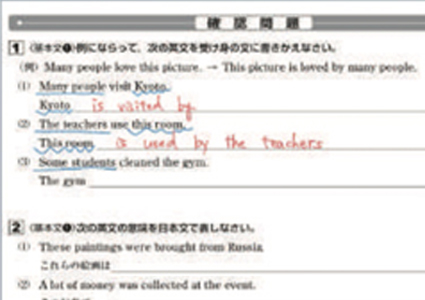 確認問題
1 〈基本文❶〉例にならって、次の英文を受け身の文に書きかえなさい。
(例) Many people love this picture. → This picture is loved by many people.
(1) Many people visit Kyoto.
Kyoto is visited by
(2) The teachers use this room.
This room is used by the teachers
(3) Some students cleaned the gym.
The gym
2 〈基本文❶〉次の英文の意味を日本文で表しなさい。
(1) These paintings were brought from Russia.
これらの絵画は
(2) A lot of money was collected at the event.